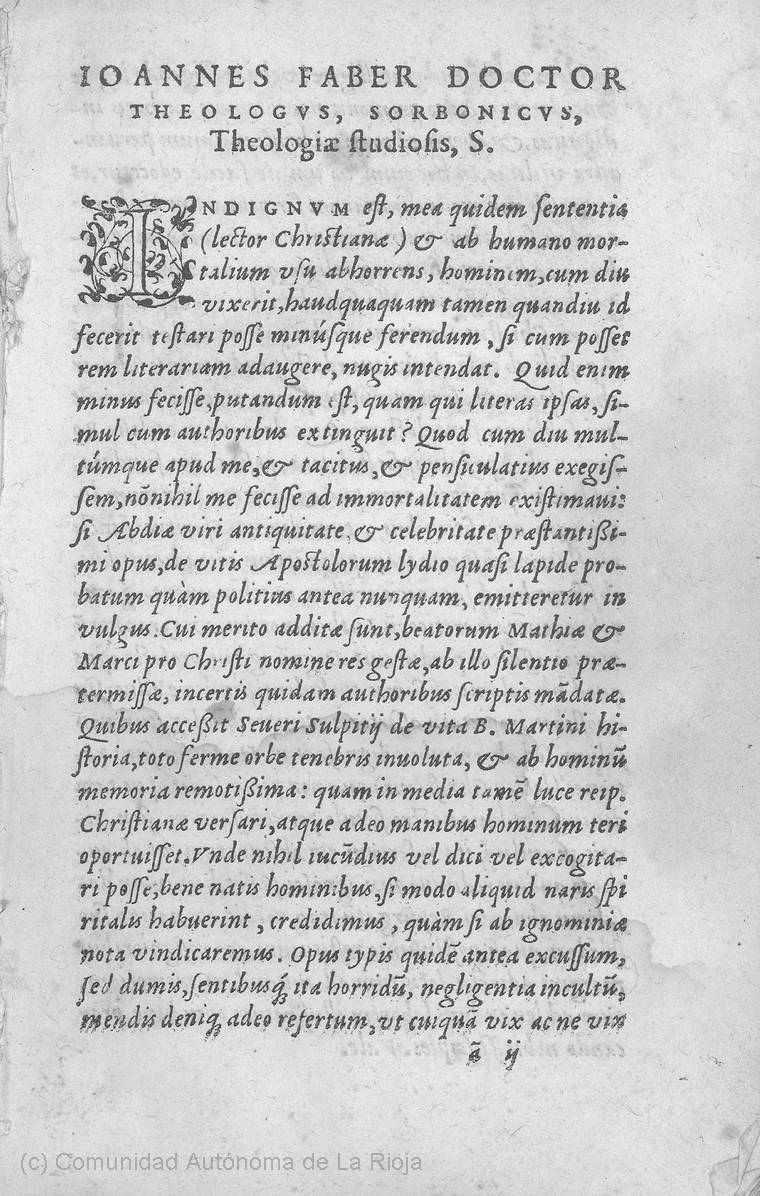 IOANNES FABER DOCTOR
THEOLOGVS, SORBONICVS,
Theologiæ ſtudioſis, S.
INDIGNVM eſt, mea quidem ſententia
(lector Chriſtianæ) & ab humano mor-
talium vſu abhorrens, hominem, cum diu
vixerit, haudquaquam tamen quandiu id
fecerit teſtari poſſe minúſque ferendum, ſi cum poſſet
rem literariam adaugere, nugis intendat. Quid enim
minus feciſſe, putandum eſt, quam qui literas ipſas, ſi-
mul cum authoribus extinguit? Quod cum diu mul-
túmque apud me, & tacitus, & penſiculatius exegiſ-
ſem, nõnihil me feciſſe ad immortalitatem existimaui:
ſi Abdiæ viri antiquitate, & celebritate præſtantißi-
mi opus, de vitis Apoſtolorum lydio quaſi lapide pro-
batum quàm politius antea nunquam, emitteretur in
vulgus. Cui merito additæ ſunt, beatorum Mathiæ &
Marci pro Chriſti nomine res geſtæ, ab illo ſilentio præ-
termiſſæ, incertis quidam authoribus ſcriptis mãdatæ.
Quibus acceßit Seueri Sulpitij de vita B. Martini hi-
ſtoria, toto ferme orbe tenebris inuoluta, & ab hominũ
memoria remotißima: quam in media tamẽ luce reip.
Chriſtianæ verſari, atque adeo manibus hominum teri
oportuiſſet. Vnde nihil iucũdius vel dici vel excogita-
ri poſſe, bene natis hominibus, ſi modo aliquid naris ſpi
ritalis habuerint, credidimus, quàm ſi ab ignominiæ
nota vindicaremus. Opus typis quidẽ antea excuſſum,
ſed dumis, ſentibusq́; ita horridũ, negligentia incultũ,
mendis deniq; adeo refertum, vt cuiquã vix ac ne vix
ã ij
(c) Comunidad Autónoma de La Rioja